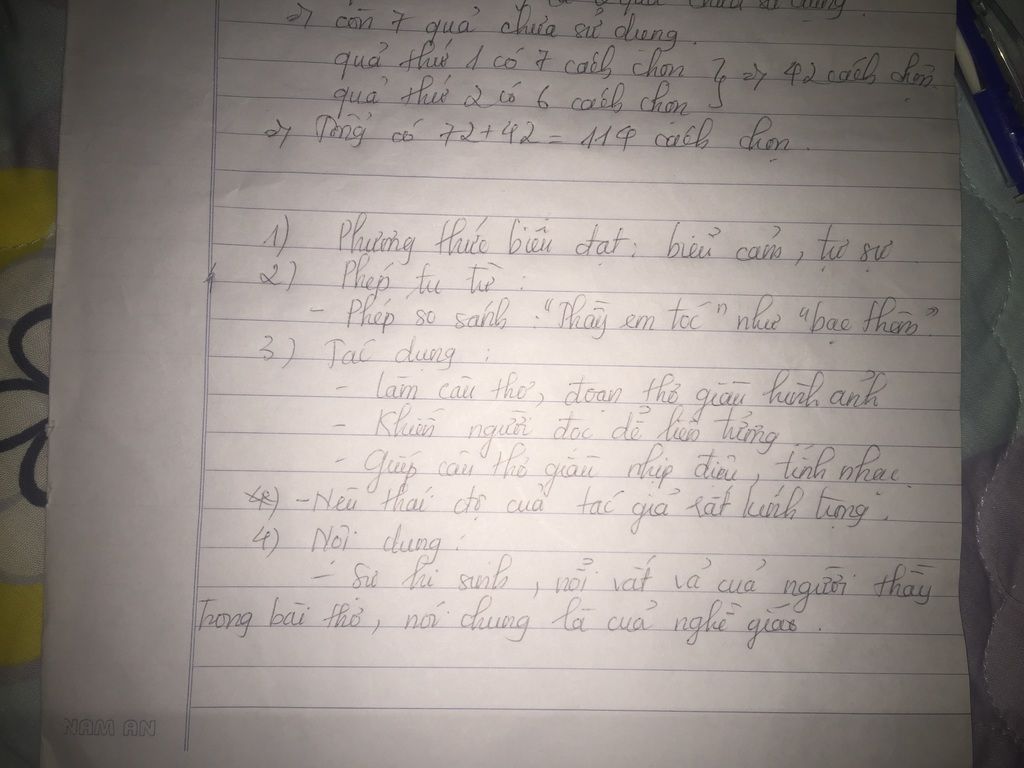 quả chưa sử dụng.
=> còn 7 quả chưa sử dụng.
quả thứ 1 có 7 cách chọn } => 42 cách chọn
quả thứ 2 có 6 cách chọn
=> Tổng có 72 + 42 = 114 cách chọn.
1) Phương thức biểu đạt: biểu cảm, tự sự
2) Phép tu từ:
- Phép so sánh: "Thầy em tóc" như "bạc thêm"
3) Tác dụng:
- Làm câu thơ, đoạn thơ giàu hình ảnh
- Khiến người đọc dễ liên tưởng
- Giúp câu thơ giàu nhịp điệu, tính nhạc.
- Nêu thái độ của tác giả rất kính trọng.
4) Nội dung:
- Sự hi sinh, nỗi vất vả của người thầy
trong bài thơ, nói chung là của nghề giáo.
NAM AN